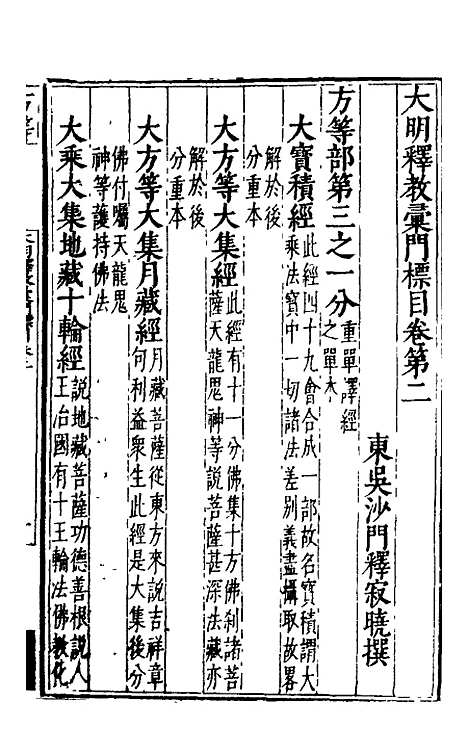 大明釋教彙門標目卷第二
東吳沙門釋寂曉撰
方等部第三之一分重單譯經
之單本
大寶積經此經四十九會合成一部故名寶積謂大
乘法寶中一切諸法差別義盡攝取故畧
解於後
分重本
大方等大集經此經有十一分佛集十方佛刹諸菩
薩天龍鬼神等說菩薩甚深法藏亦
解於後
分重本
大方等大集月藏經月藏菩薩從東方來說吉祥章
句利益衆生此經是大集後分
佛付囑天龍鬼
神等護持佛法
大乘大集地藏十輪經說地藏菩薩功德善根說人
王治國有十王輪法佛教化